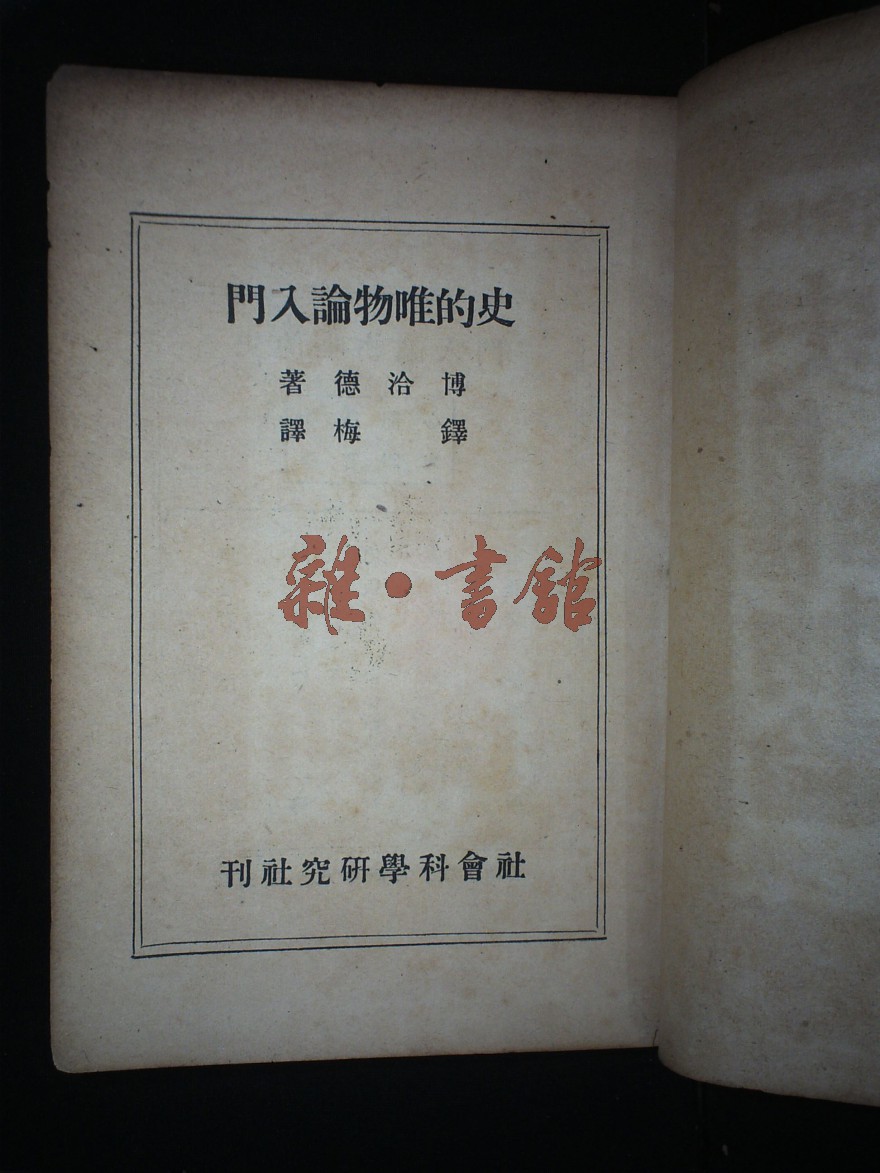 史的唯物論入門
博洽德著
鐸梅譯
雜·書館
社會科學研究社刊